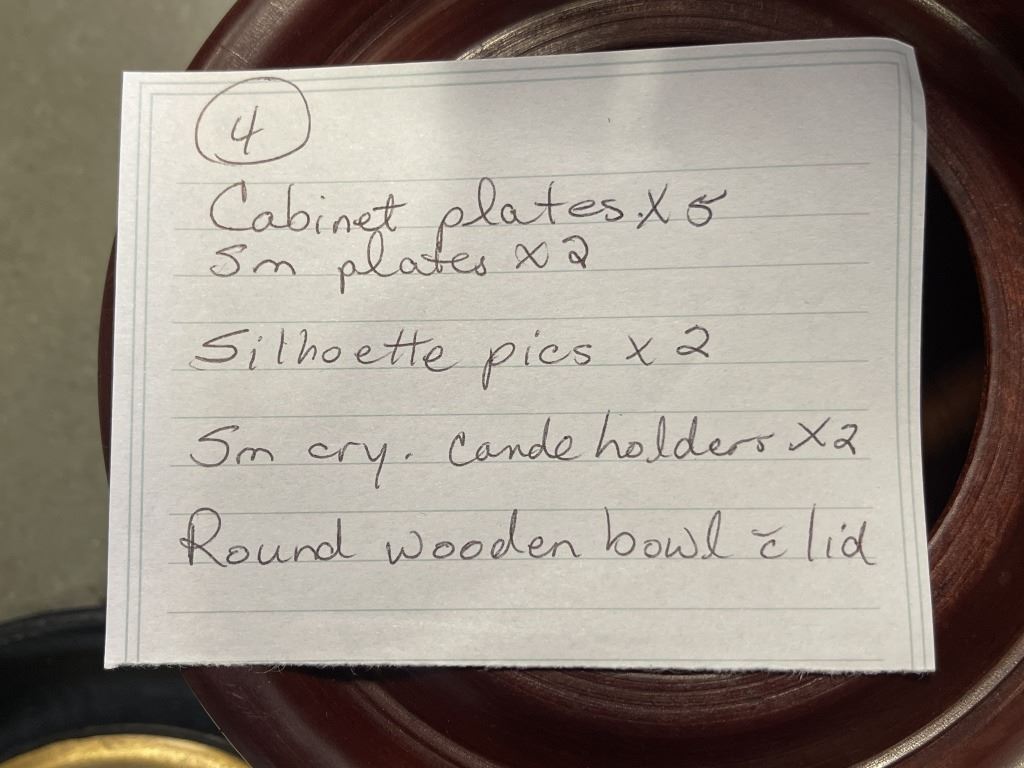 4
Cabinet plates x 5
Sm plates x 2
Silhoette pics x 2
Sm cry. Cande holders x 2
Round wooden bowl c̄ lid